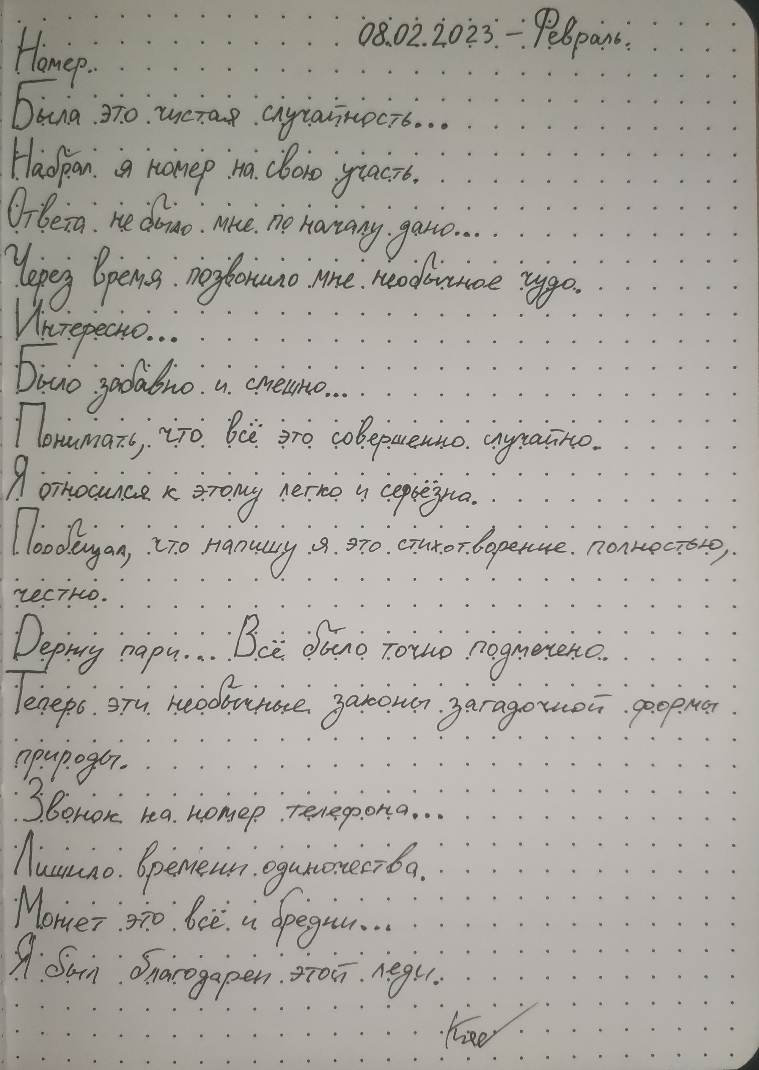 08.02.2023 – Февраль.
Номер..
Была это чистая случайность...
Набрал я номер на свою участь.
Ответа не было мне по началу дано...
Через время позвонило мне необычное чудо.
Интересно...
Было забавно и смешно...
Понимать, что всё это совершенно случайно.
Я относился к этому легко и серьёзна.
Пообещал, что напишу я это стихотворение полностью,
честно.
Держу пари... Всё было точно подмечено.
Теперь эти необычные законы загадочной формы
природы.
Звонок на номер телефона...
Лишило времени одиночества.
Может это всё и бредни...
Я был благодарен этой леди.